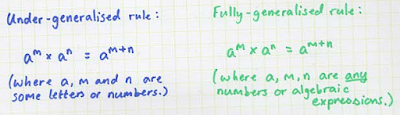 Under-generalised rule:
aᵐ × aⁿ = aᵐ⁺ⁿ
(where a, m and n are
some letters or numbers.)
Fully-generalised rule:
aᵐ × aⁿ = aᵐ⁺ⁿ
(where a, m, n are any
numbers or algebraic
expressions.)